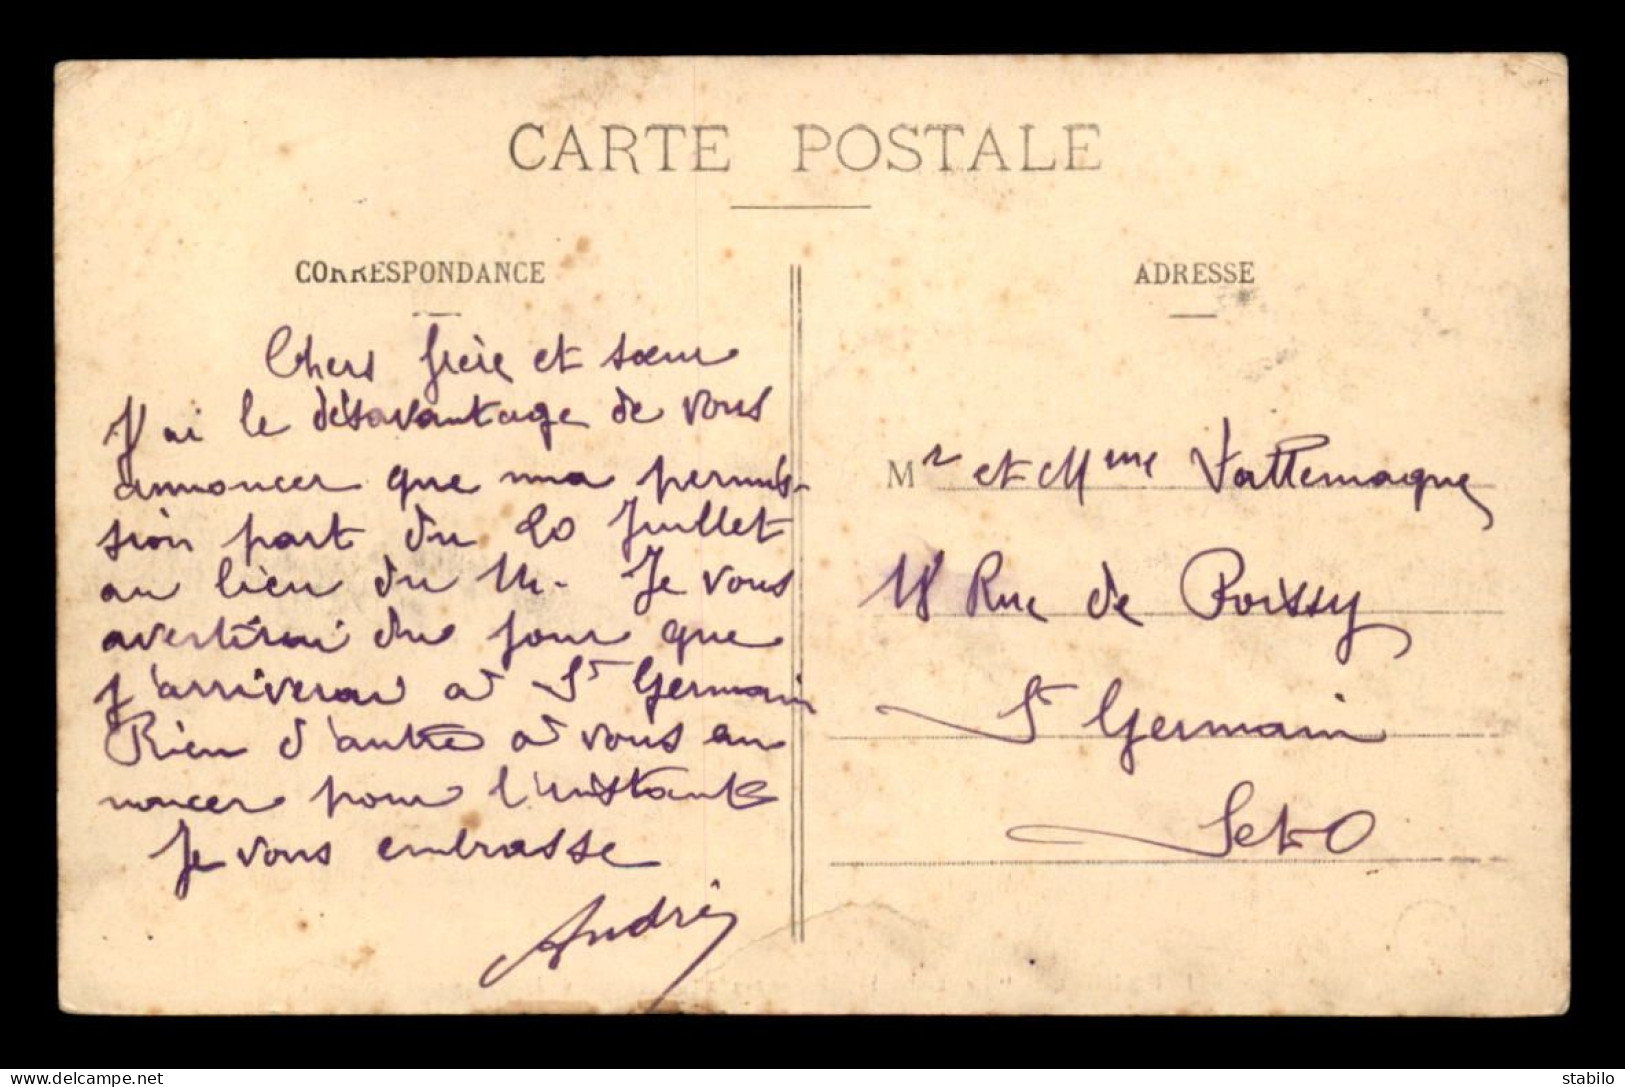 CARTE POSTALE
CORRESPONDANCE
Chers frère et sœur
J'ai le désavantage de vous
annoncer que ma permis-
sion part du 20 Juillet
au lieu du 14. Je vous
avertirai du jour que
j'arriverai à St Germain
Rien d'autre à vous an
noncer pour l'instant
Je vous embrasse
André
ADRESSE
Mr et Mme Vattemagne
18 Rue de Poissy
St Germain
S et O
stabilo